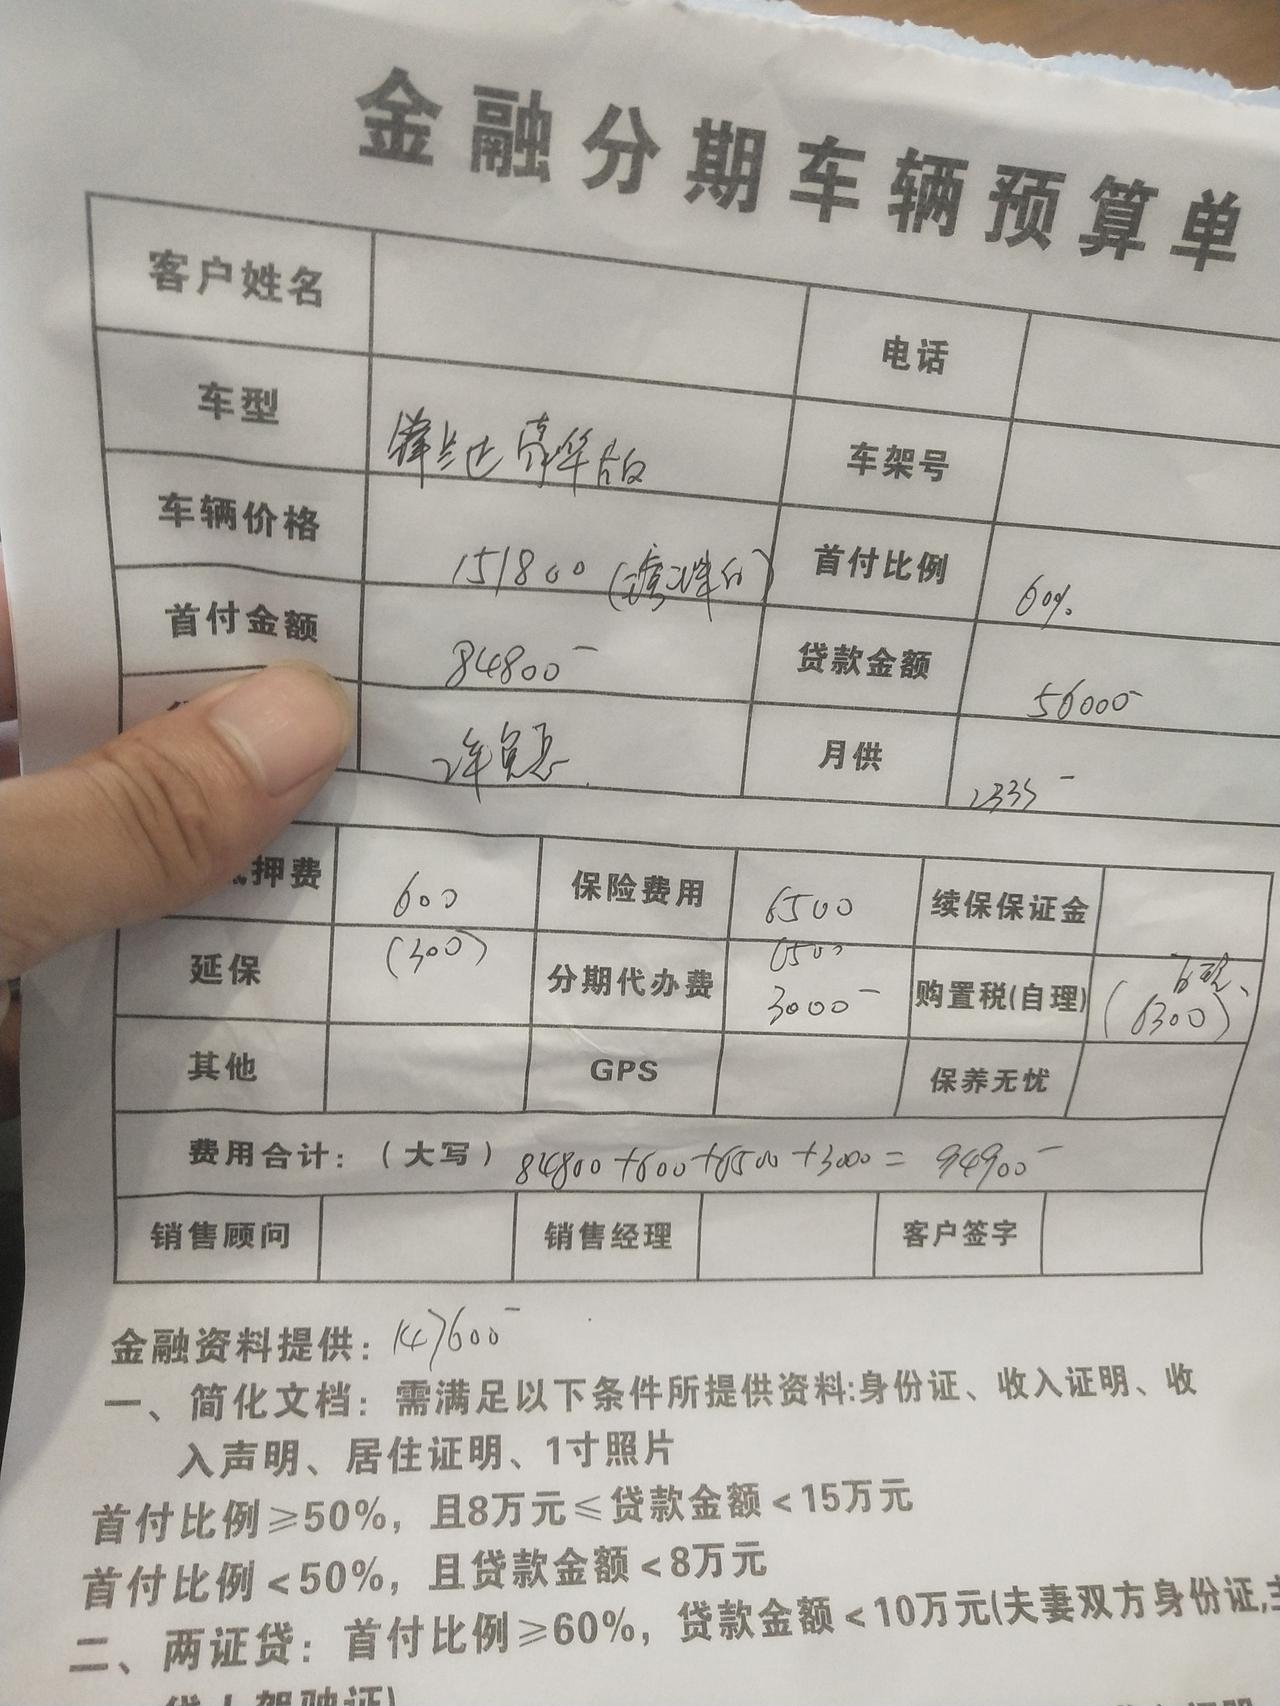 金融分期车辆预算单
客户姓名 电话
车型 锋兰达 豪华版 车架号
车辆价格 151800 首付比例 60%
首付金额 84800- 贷款金额 56000-
2年免息 月供 2335-
押费 600 保险费用 6500 续保保证金
延保 (300) 分期代办费 6500 3000- 购置税(自理) (6300)
其他 GPS 保养无忧
费用合计：（大写）84800+600+6500+3000=94900-
销售顾问 销售经理 客户签字
金融资料提供：147600-
一、简化文档：需满足以下条件所提供资料:身份证、收入证明、收
入声明、居住证明、1寸照片
首付比例≥50%，且8万元≤贷款金额<15万元
首付比例<50%，且贷款金额<8万元
二、两证贷：首付比例≥60%，贷款金额<10万元(夫妻双方身份证,主
贷人驾驶证)